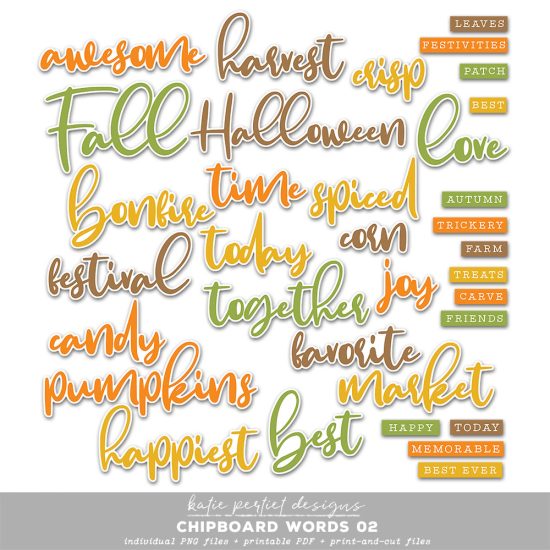 awesome
harvest
crisp
LEAVES
FESTIVITIES
PATCH
BEST
Fall
Halloween
love
time
spiced
bonfire
today
corn
AUTUMN
TRICKERY
FARM
TREATS
CARVE
FRIENDS
festival
together
joy
candy
favorite
pumpkins
market
happiest
best
HAPPY
TODAY
MEMORABLE
BEST EVER
katie pertiet designs
CHIPBOARD WORDS 02
individual PNG files + printable PDF + print-and-cut files